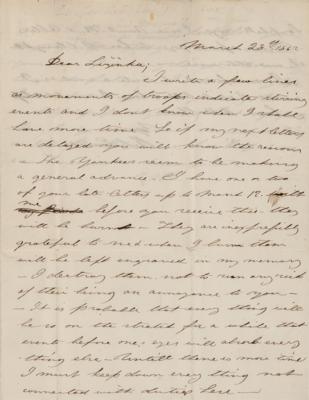 March 23rd 1862
Dear Lizinka;
I write a few lines
as movements of troops indicate stirring
events and I don't know when I shall
have more time. So if my next letters
are delayed you will know the reason
- The Yankees seem to be making
a general advance. I have one or two
of your late letters up to March 12. with
me before you receive this they
will be burnt - They are inexpressibly
grateful to me & when I burn them
will be left engraved in my memory
- I destroy them not to run any risk
of their being an annoyance to you -
- It is probable that every thing will
be on the stretch for a while & that
events before our eyes will absorb every
thing else - Untill there is more time
I must keep down every thing not
connected with duties here -